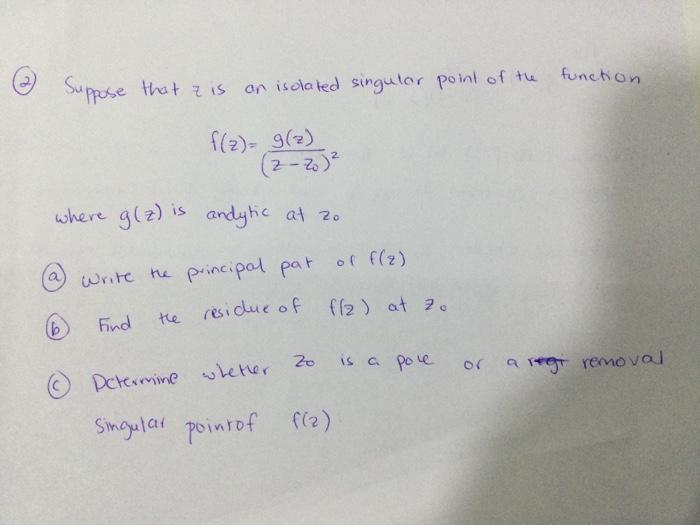 ② Suppose that z is an isolated singular point of the function
f(z) = g(z) / (z - z₀)²
where g(z) is analytic at z₀
ⓐ Write the principal part of f(z)
ⓑ Find the residue of f(z) at z₀
ⓒ Determine whether z₀ is a pole or a removal
Singular point of f(z)